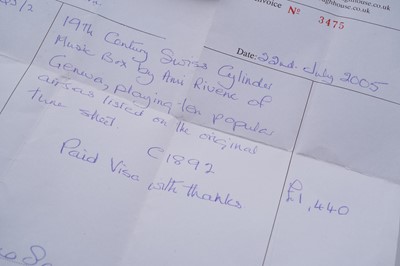 ghhouse.co.uk
nghhouse.co.uk
Invoice Nº 3475
Date: 22nd July 2005
19th Century Swiss Cylinder
Music Box by Ami Rivenc of
Geneva, playing ten popular
airs as listed on the original
tune sheet.
C1892
Paid Visa
with thanks
£1,440